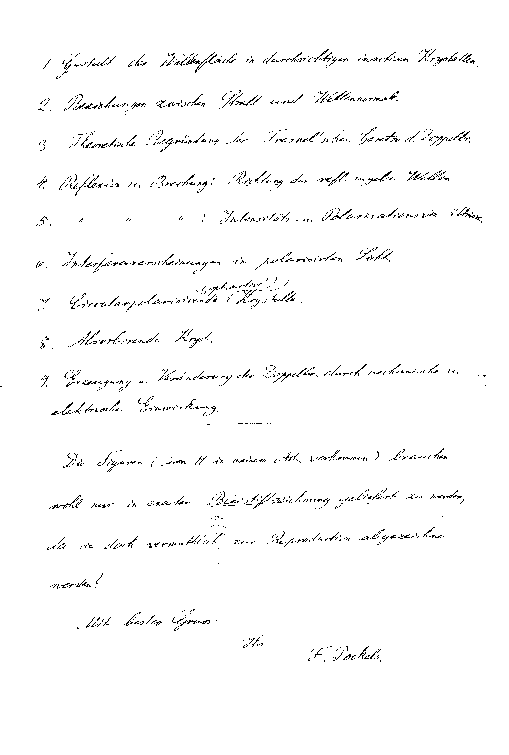 1. Gestalt der Wellenfläche in durchsichtigen inactiven Krystallen.
2. Beziehungen zwischen Strahl und Wellennormale.
3. Theoretische Begründung der Fresnel'schen Gesetze d. Doppelbr.
4. Reflexion u. Brechung: Richtung der refl. Wellen
5. " " " : Intensitäts- u. Polarisationsverhältnisse.
6. Interferenzerscheinungen in polarisirtem Licht.
7. Circularpolarisirende Krystalle.
8. Absorbirende Kryst.
9. Erzeugung u. Veränderung der Doppelbr. durch mechanische u.
elektrische Einwirkung.
Die Figuren (deren 11 in meinem Art. vorkommen) brauchen
wohl nur in exacter Bleistiftzeichnung geliefert zu werden,
da sie doch vermuthlich zur Reproduction abgezeichnet
werden?
Mit bestem Gruss
Ihr
F. Pockels.